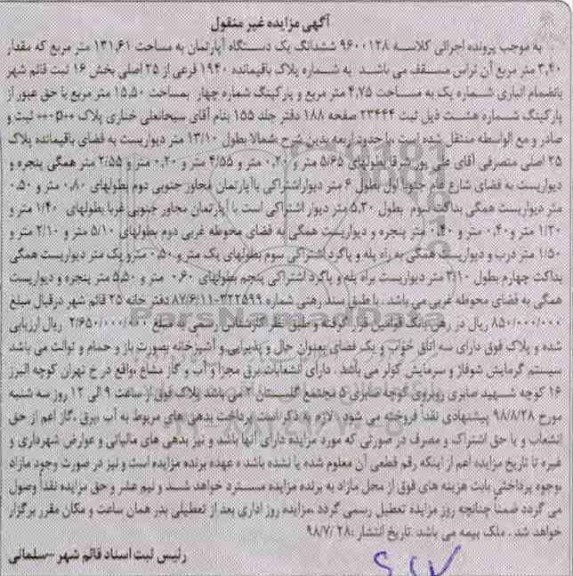 آگهی مزایده غیر منقول
به موجب پرونده اجرائی کلاسه ۹۶۰۰۱۲۸ ششدانگ یک دستگاه آپارتمان به مساحت ۱۳۱,۶۱ متر مربع که مقدار
۳,۴۰ متر مربع آن تراس مسقف می باشد به شماره پلاک باقیمانده ۱۹۴۰ فرعی از ۲۵ اصلی بخش ۱۶ ثبت قائم شهر
بانضمام انباری شماره یک به مساحت ۴,۷۵ متر مربع و پارکینگ شماره چهار بمساحت ۱۵,۵۰ متر مربع با حق عبور از
پارکینگ شماره هشت ذیل ثبت ۲۳۴۴۴ صفحه ۱۸۸ دفتر جلد ۱۵۵ بنام آقای سبحانعلی خناری پلاک ثبت و
صادر و مع الواسطه منتقل شده است با حدود اربعه بدین شرح شمالا بطول ۱۳/۱۰ متر دیواریست به فضای باقیمانده پلاک
۲۵ اصلی متصرفی آقای علی پور شرقا بطولهای ۵/۶۵ متر و ۰/۲۰ متر و ۴/۵۵ متر و ۰/۲۰ متر و ۲/۵۵ متر همگی پنجره و
دیواریست به فضای شارع عام جنوبا اول بطول ۶ متر دیوار اشتراکی با آپارتمان مجاور جنوبی دوم بطولهای ۰,۸۰ متر و ۰,۵۰
متر دیواریست همگی بداکت سوم بطول ۵,۳۰ متر دیوار اشتراکی است با آپارتمان مجاور جنوبی غربا بطولهای ۱/۴۰ متر و
۱/۲۰ متر و ۰,۴۰ متر و ۰,۴۰ متر پنجره و دیواریست همگی به فضای محوطه غربی دوم بطولهای ۵/۱۰ متر و ۲/۱۰ متر و
۱/۵۰ متر درب و دیواریست همگی به راه پله و پاگرد اشتراکی سوم بطولهای یک متر و ۰,۵۰ متر و یک متر دیواریست همگی
بداکت چهارم بطول ۳/۱۰ متر دیواریست براه پله و پاگرد اشتراکی پنجم بطولهای ۰,۶۰ متر و ۵,۵۰ متر پنجره و دیواریست
همگی به فضای محوطه غربی می باشد . با طبق سند رهنی شماره ۳۲۲۵۹۹-۸۷/۶/۱۱ دفتر خانه ۲۵ قائم شهر درقبال مبلغ
۸۵۰/۰۰۰/۰۰۰ ریال در رهن بانک قوامین قرار گرفته و طبق نظر کارشناس رسمی به مبلغ ۲/۶۵۰/۰۰۰/۰۰۰ ریال ارزیابی
شده و پلاک فوق دارای سه اتاق خواب و یک فضای بعنوان حال و پذیرایی و آشپزخانه بصورت باز و حمام و توالت می باشد
سیستم گرمایش شوفاژ و سرمایش کولر می باشد . دارای انشعابات برق مجزا و آب و گاز مشاع واقع در خ تهران کوچه البرز
۱۶ کوچه شهید صابری روبروی کوچه صابری ۵ مجتمع گلستان ۲ می باشد پلاک فوق از ساعت ۹ الی ۱۲ روز سه شنبه
مورخ ۹۸/۸/۲۸ پیشنهادی نقدا فروخته می شود . لازم به ذکر است پرداخت بدهی های مربوط به آب ،برق ،گاز اعم از حق
انشعاب و یا حق اشتراک و مصرف در صورتی که مورد مزایده دارای آنها باشد و نیز بدهی های مالیاتی و عوارض شهرداری و
غیره تا تاریخ مزایده اعم از اینکه رقم قطعی آن معلوم شده یا نشده باشد ه عهده برنده مزایده است و نیز در صورت وجود مازاد
،وجوه پرداختی بابت هزینه های فوق از محل مازاد به برنده مزایده مسترد خواهد شد و نیم عشر و حق مزایده نقدا وصول
می گردد ضمنا چنانچه روز مزایده تعطیل رسمی گردد ،مزایده روز اداری بعد از تعطیلی بدر همان ساعت و مکان مقرر برگزار
خواهد شد . ملک بیمه می باشد. تاریخ انتشار :۹۸/۷/۲۸
رئیس ثبت اسناد قائم شهر –سلمانی
ParsNamadData